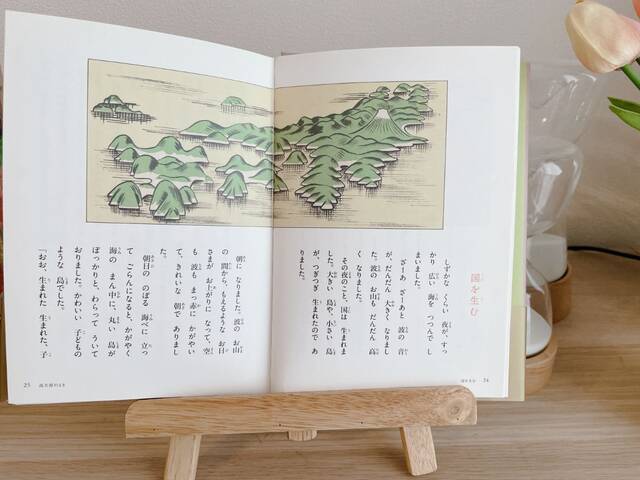 国を生む
しずかな くらい 夜が、すっ
かり 広い 海を つつんで し
まいました。
ざーあ ざーあと 波の 音
が、だんだん 大きく なりまし
た。波の お山も だんだん 高
く なりました。
その夜のこと、国は 生まれま
した。大きい 島や、小さい 島
が、つぎつぎ 生まれたので あ
りました。
24
朝に なりました。波の お山
の 間から、もえるような お日
さまが おあがりに なって、空
も 波も まっ赤に かがやい
て、きれいな 朝で ありまし
た。
朝日の のぼる 海べに 立っ
て ごらんになると、かがやく
海の まん中に 丸い 島が
ぽっかりと、わらって ういて
おりました。かわいい 子どもの
ような 島でした。
「おお、生まれた 生まれた、子
25